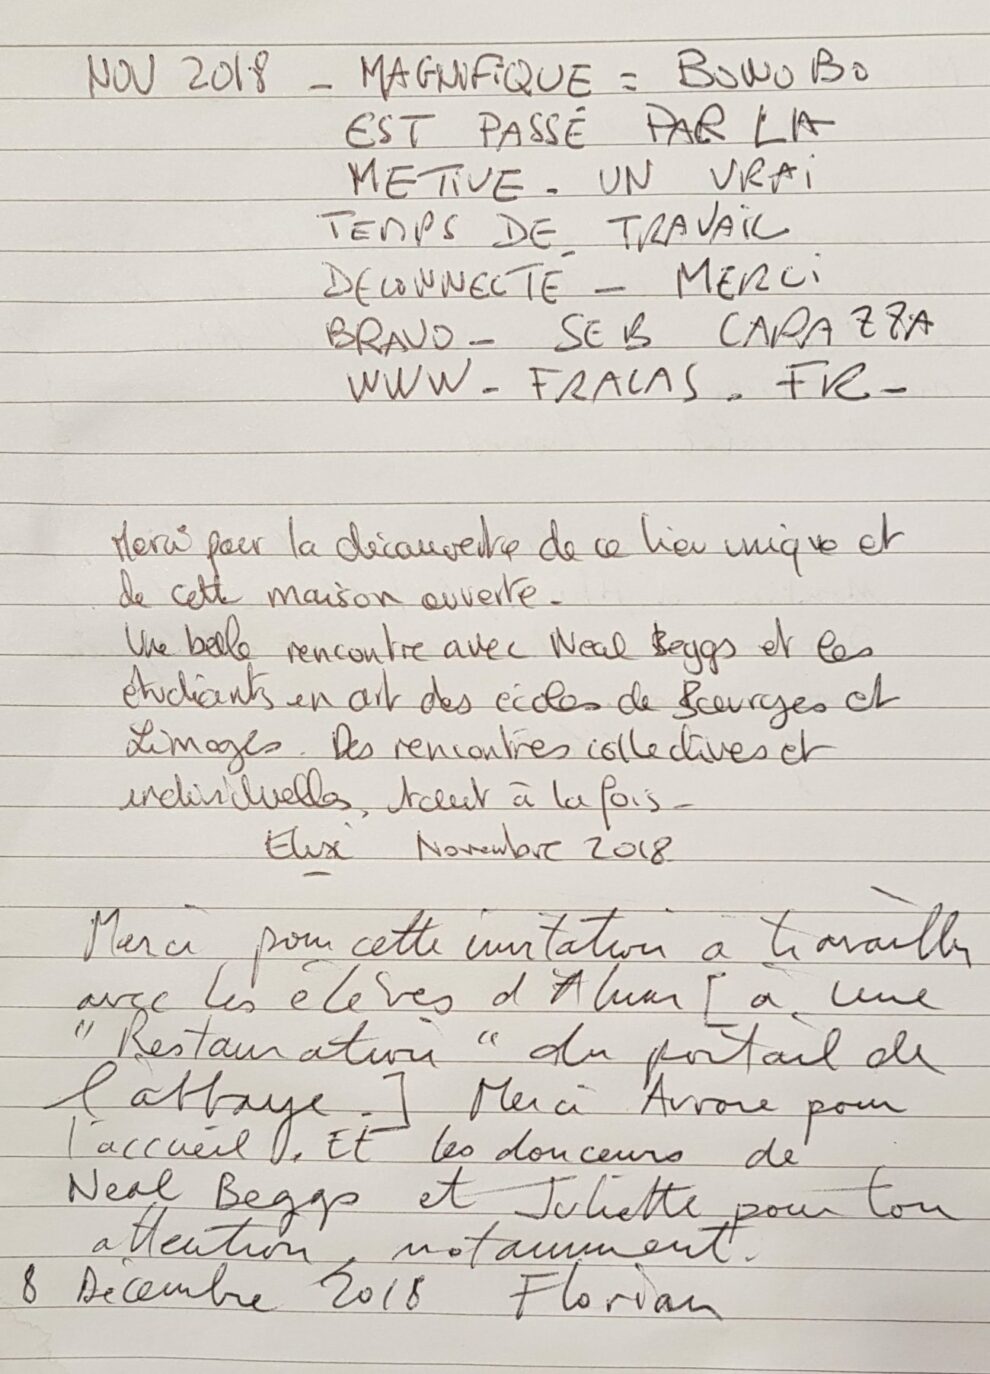 NOV 2018 - MAGNIFIQUE = BONOBO
EST PASSÉ PAR LA
METIVE. UN VRAI
TEMPS DE TRAVAIL
DECONNECTÉ - MERCI
BRAVO - SEB CAPAZZA
WWW - FRACAS . FR -
Merci pour la découverte de ce lieu unique et
de cette maison ouverte.
Une belle rencontre avec Neal Beggs et les
étudiants en art des écoles de Bourges et
Limoges. Des rencontres collectives et
individuelles, tout à la fois -
Novembre 2018
Merci pour cette invitation a travailler
avec les élèves d'Ahun [ à une
"Restauration" du portail de
l'abbaye.] Merci Aurore pour
l'accueil ). Et les douceurs de
Neal Beggs et Juliette pour ton
attention, notamment.
8 Décembre 2018 Florian